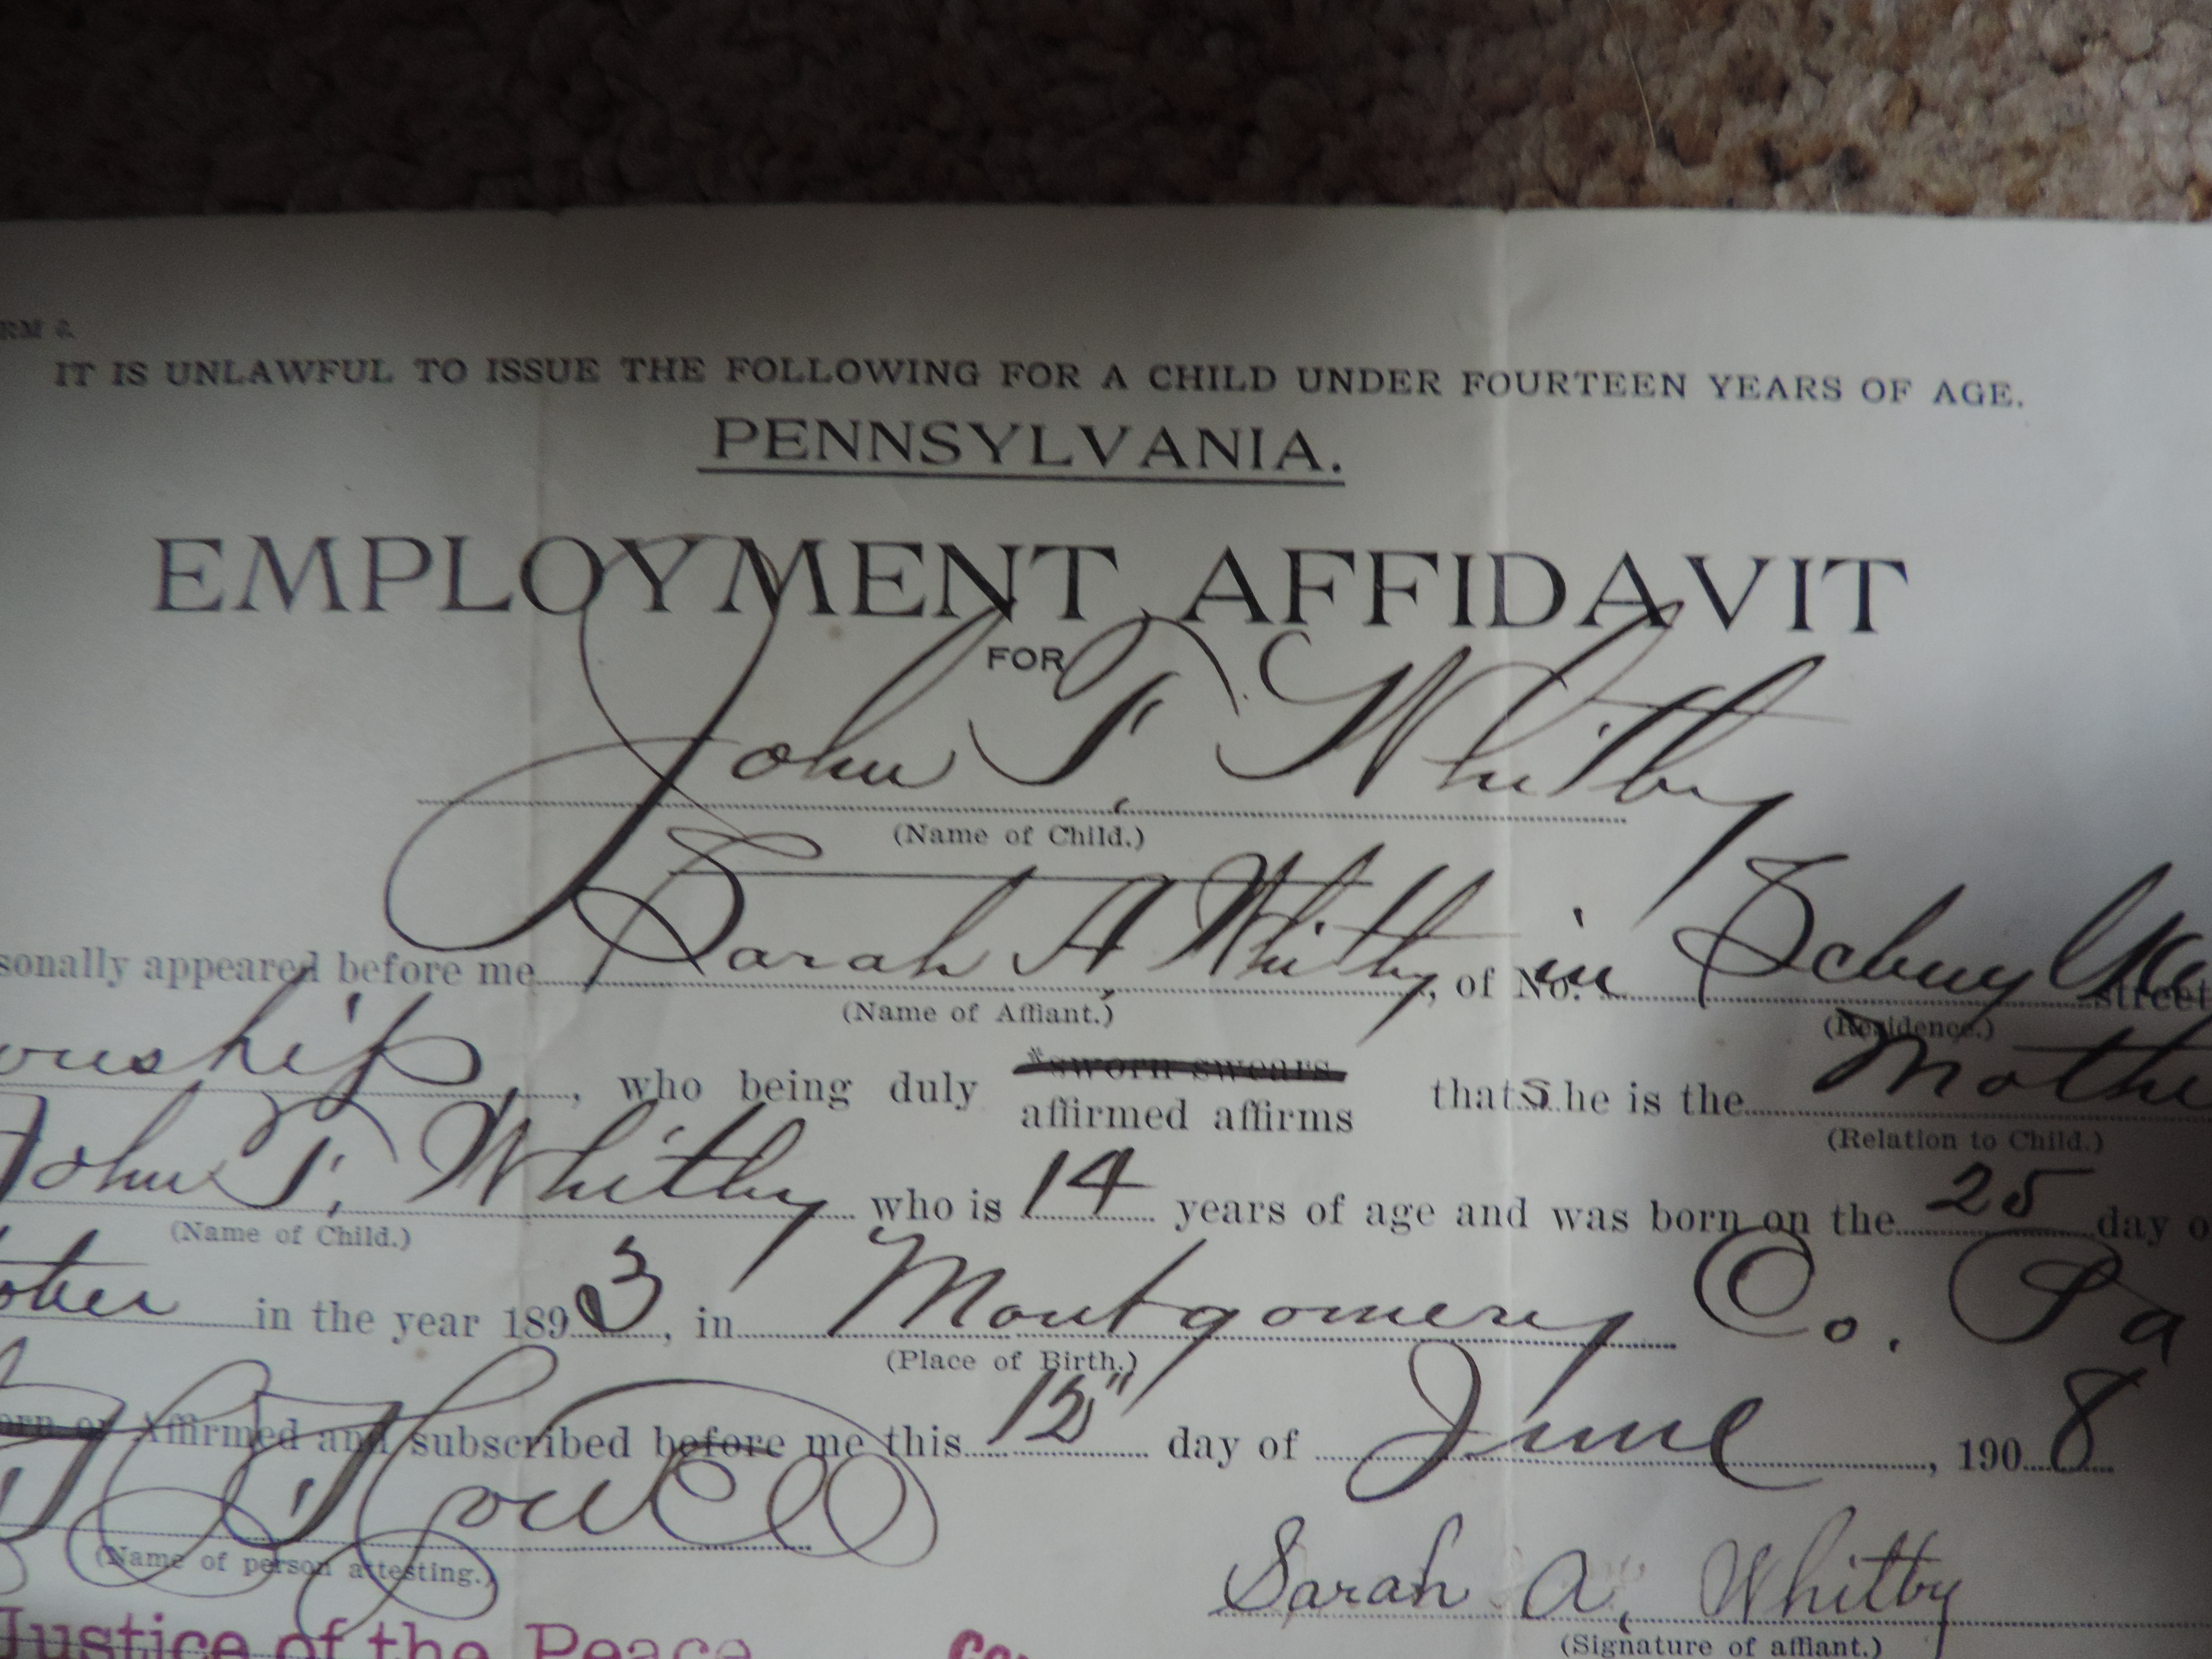 RM 6.
IT IS UNLAWFUL TO ISSUE THE FOLLOWING FOR A CHILD UNDER FOURTEEN YEARS OF AGE.
PENNSYLVANIA.
EMPLOYMENT AFFIDAVIT
FOR
John T. Whitby
(Name of Child.)
sonally appeared before me Sarah A Whitby, of No. in street
(Name of Affiant.) (Residence.)
ownship, who being duly *sworn swears affirmed affirms that she is the Mothe
(Relation to Child.)
John T. Whitby who is 14 years of age and was born on the 25 day o
(Name of Child.)
tober in the year 1893, in Montgomery Co. Pa
(Place of Birth.)
orn or Affirmed and subscribed before me this 12" day of June, 1908
(Name of person attesting.)
Sarah A. Whitby
(Signature of affiant.)
Justice of the Peace